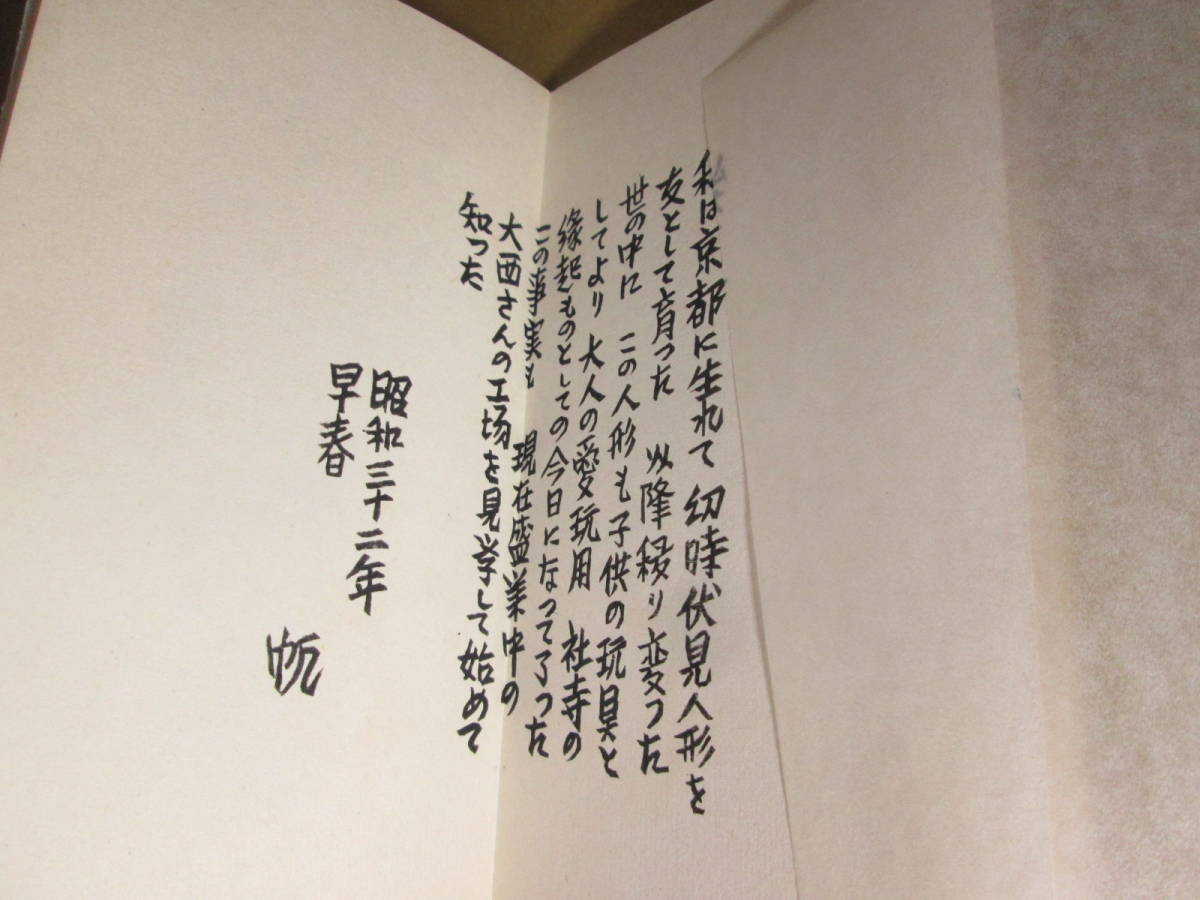 私は京都に生れて 幼時伏見人形を
友として育った 以降移り変った
世の中に この人形も子供の玩具と
してより 大人の愛玩用 社寺の
縁起ものとしての今日になって了った
この事実も 現在盛業中の
大西さんの工場を見学して始めて
知った
昭和三十二年
早春